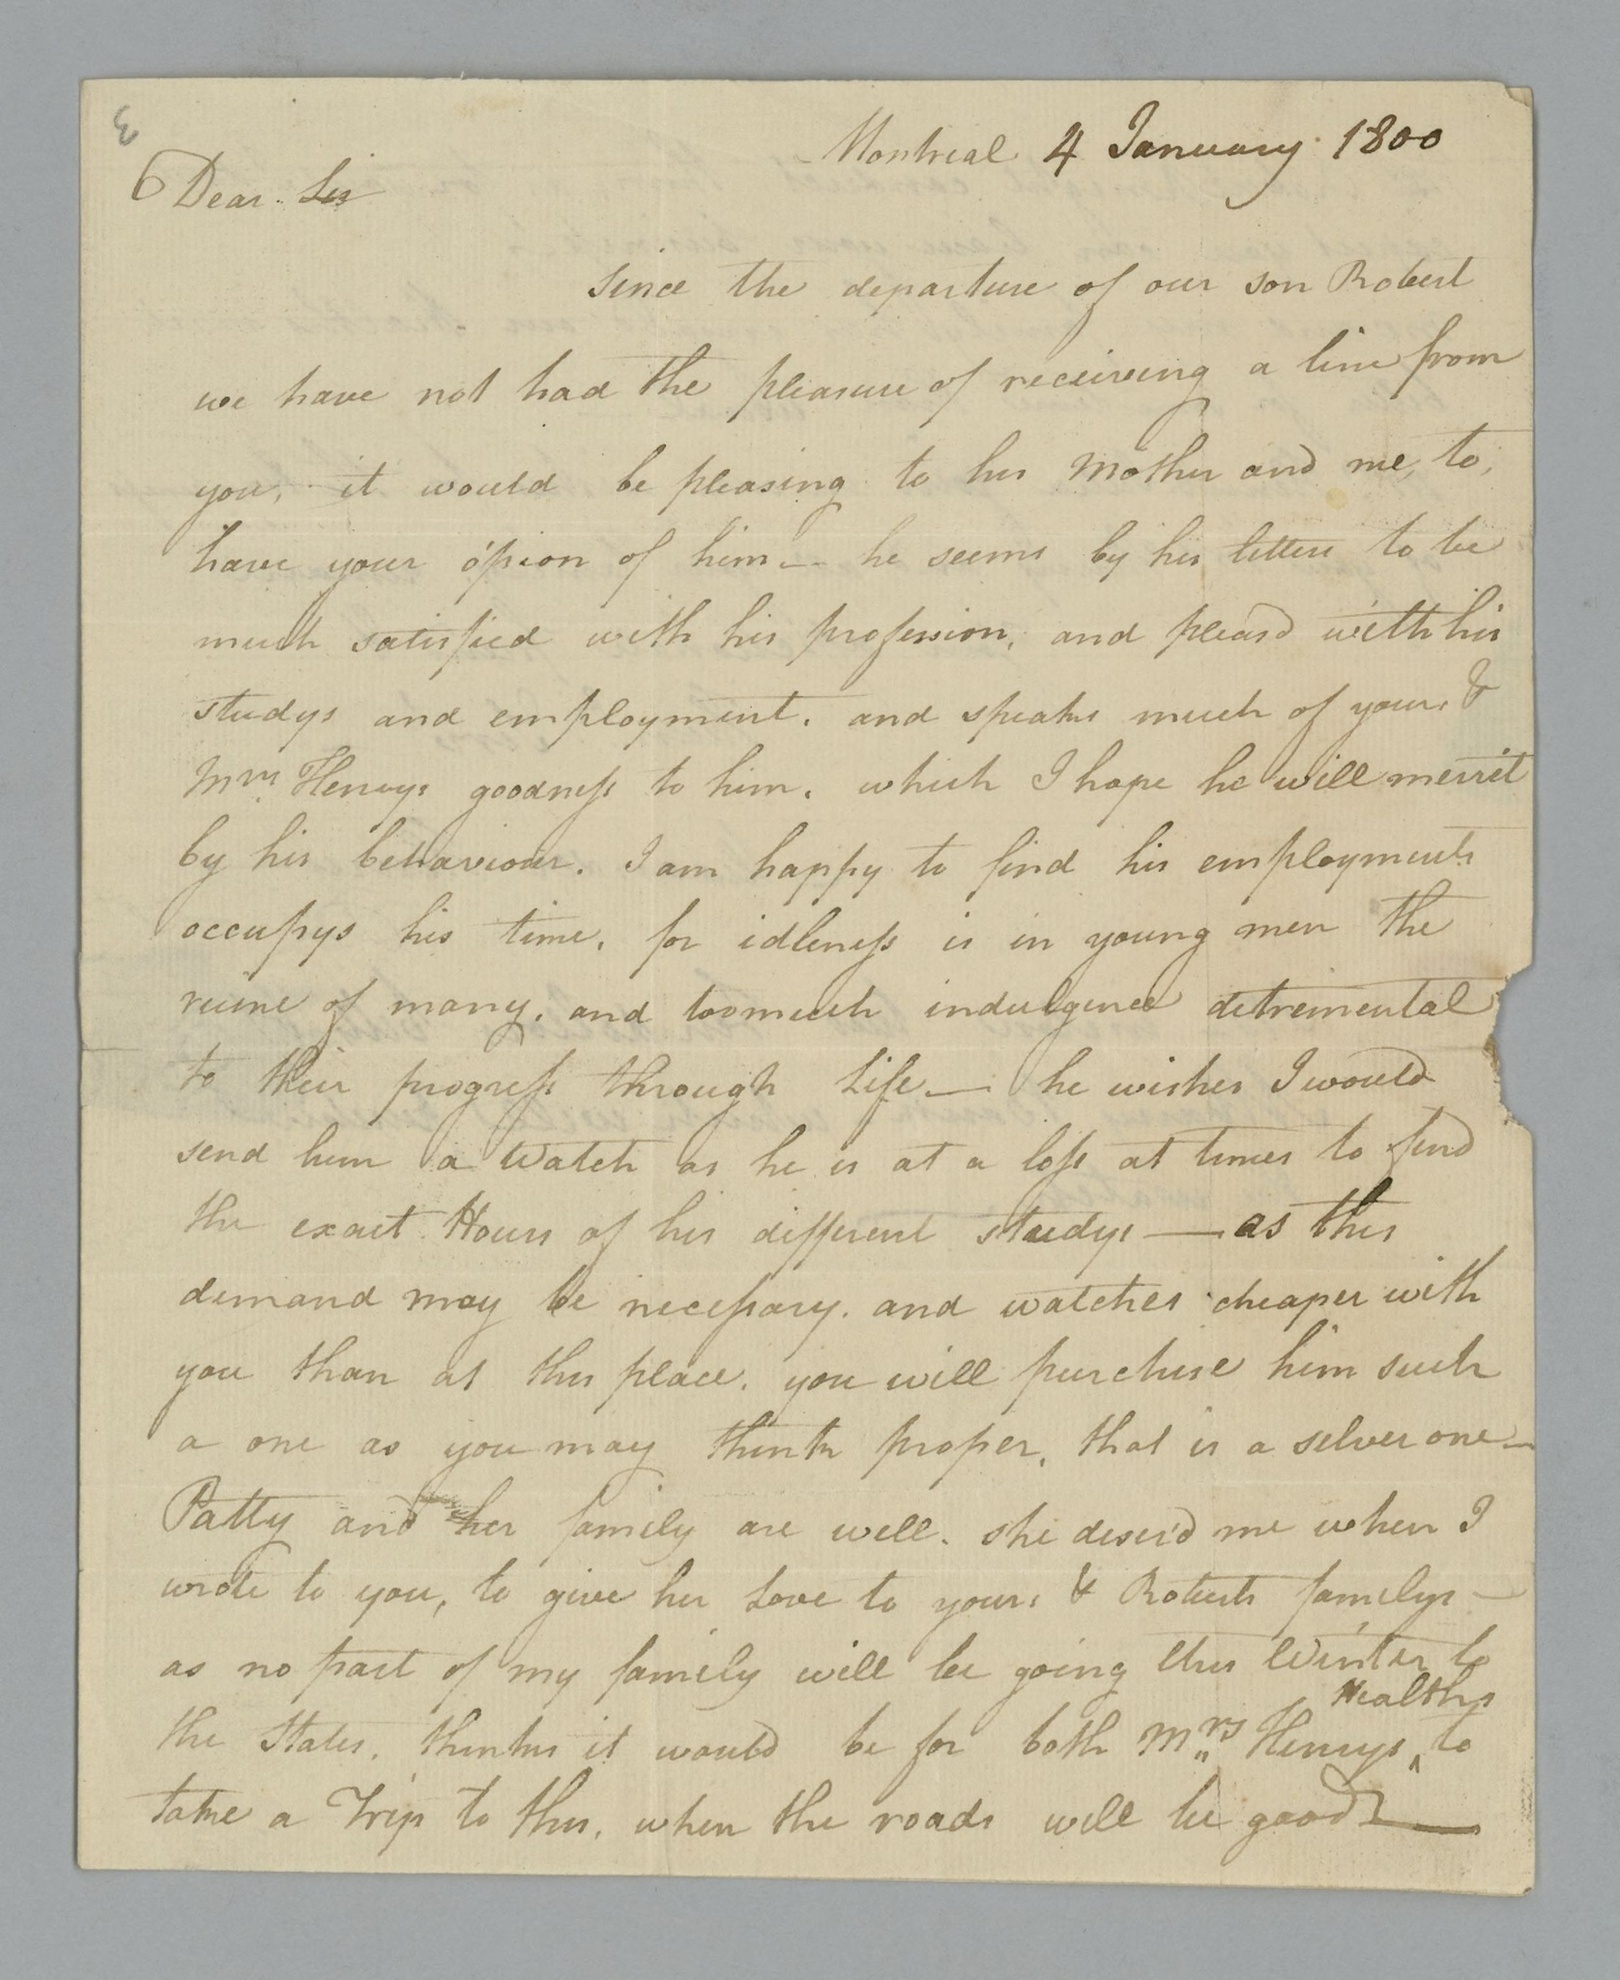 3
Montreal 4 January 1800
Dear Sir
Since the departure of our son Robert
we have not had the pleasure of receiving a line from
you, it would be pleasing to his Mother and me, to,
have your opion of him — he seems by his letters to be
much satisfied with his profession, and pleasd with his
studys and employment, and speaks much of yours &
Mrs Henrys goodness to him, which I hope he will merrit
by his behaviour. I am happy to find his employments
occupys his time, for idleness is in young men the
ruine of many, and toomuch indulgence detremental
to their progress through Life — he wishes I would
send him a Watch as he is at a loss at times to find
the exact Hours of his different studys — as this
demand may be necessary. and watches cheaper with
you than at this place. you will purchise him such
a one as you may think proper, that is a selver one —
Patty and her family are well. she desir'd me when I
wrote to you, to give her Love to yours & Roberts familys —
as no part of my family will be going this Winter to
Healths
the States, thinks it would be for both Mrs Henrys ^ to
take a Trip to this, when the roads will be good —